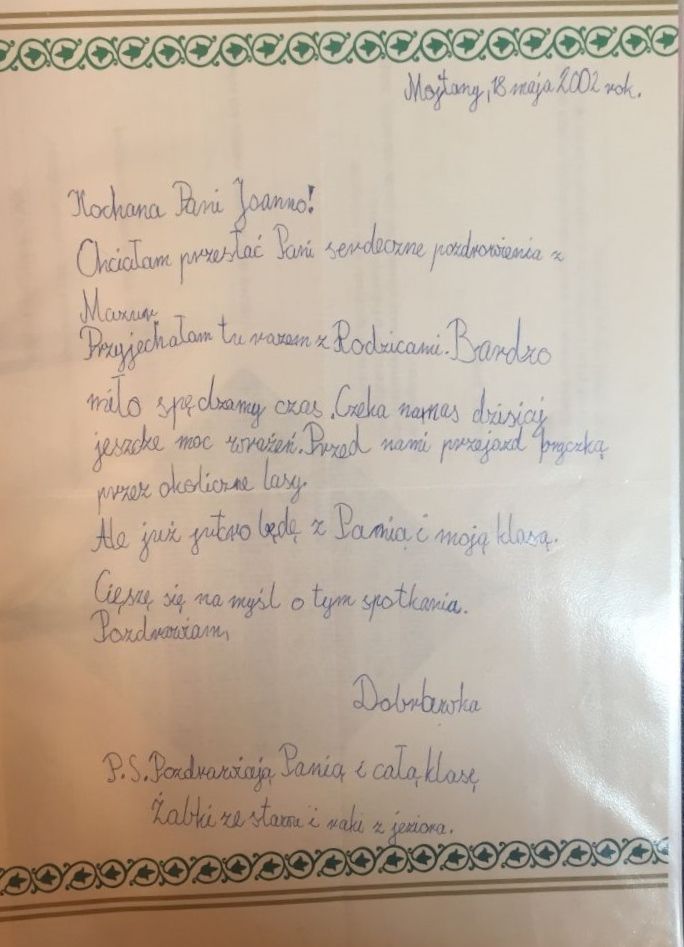 Mojtyny, 18 maja 2002 rok.
Kochana Pani Joanno!
Chciałam przesłać Pani serdeczne pozdrowienia z
Mazur.
Przyjechałam tu razem z Rodzicami. Bardzo
miło spędzamy czas. Czeka na nas dzisiaj
jeszcze moc wrażeń. Przed nami przejazd bryczką
przez okoliczne lasy.
Ale już jutro będę z Panią i moją klasą.
Cieszę się na myśl o tym spotkania.
Pozdrawiam,
Dobrawka
P.S. Pozdrawiają Panią i całą klasę
Żabki ze stawu i raki z jeziora.